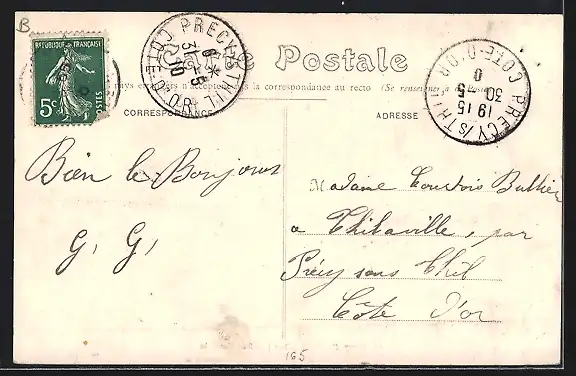 B
RÉPUBLIQUE FRANÇAISE
5c POSTES
PRECY S/S THIL COTE-D'OR
6 * 5
31
10
e Postale
pays étrangers n'acceptent pas la correspondance au recto (Se renseigner à la Poste)
PRECY S/S THIL COTE-D'OR
19 15
30 5
0
CORRESPONDANCE
ADRESSE
Bien le Bonjour
G, G,
Madame Courtois Bullier
a Thibaville, par
Précy sous Thil
Côte d'or
165